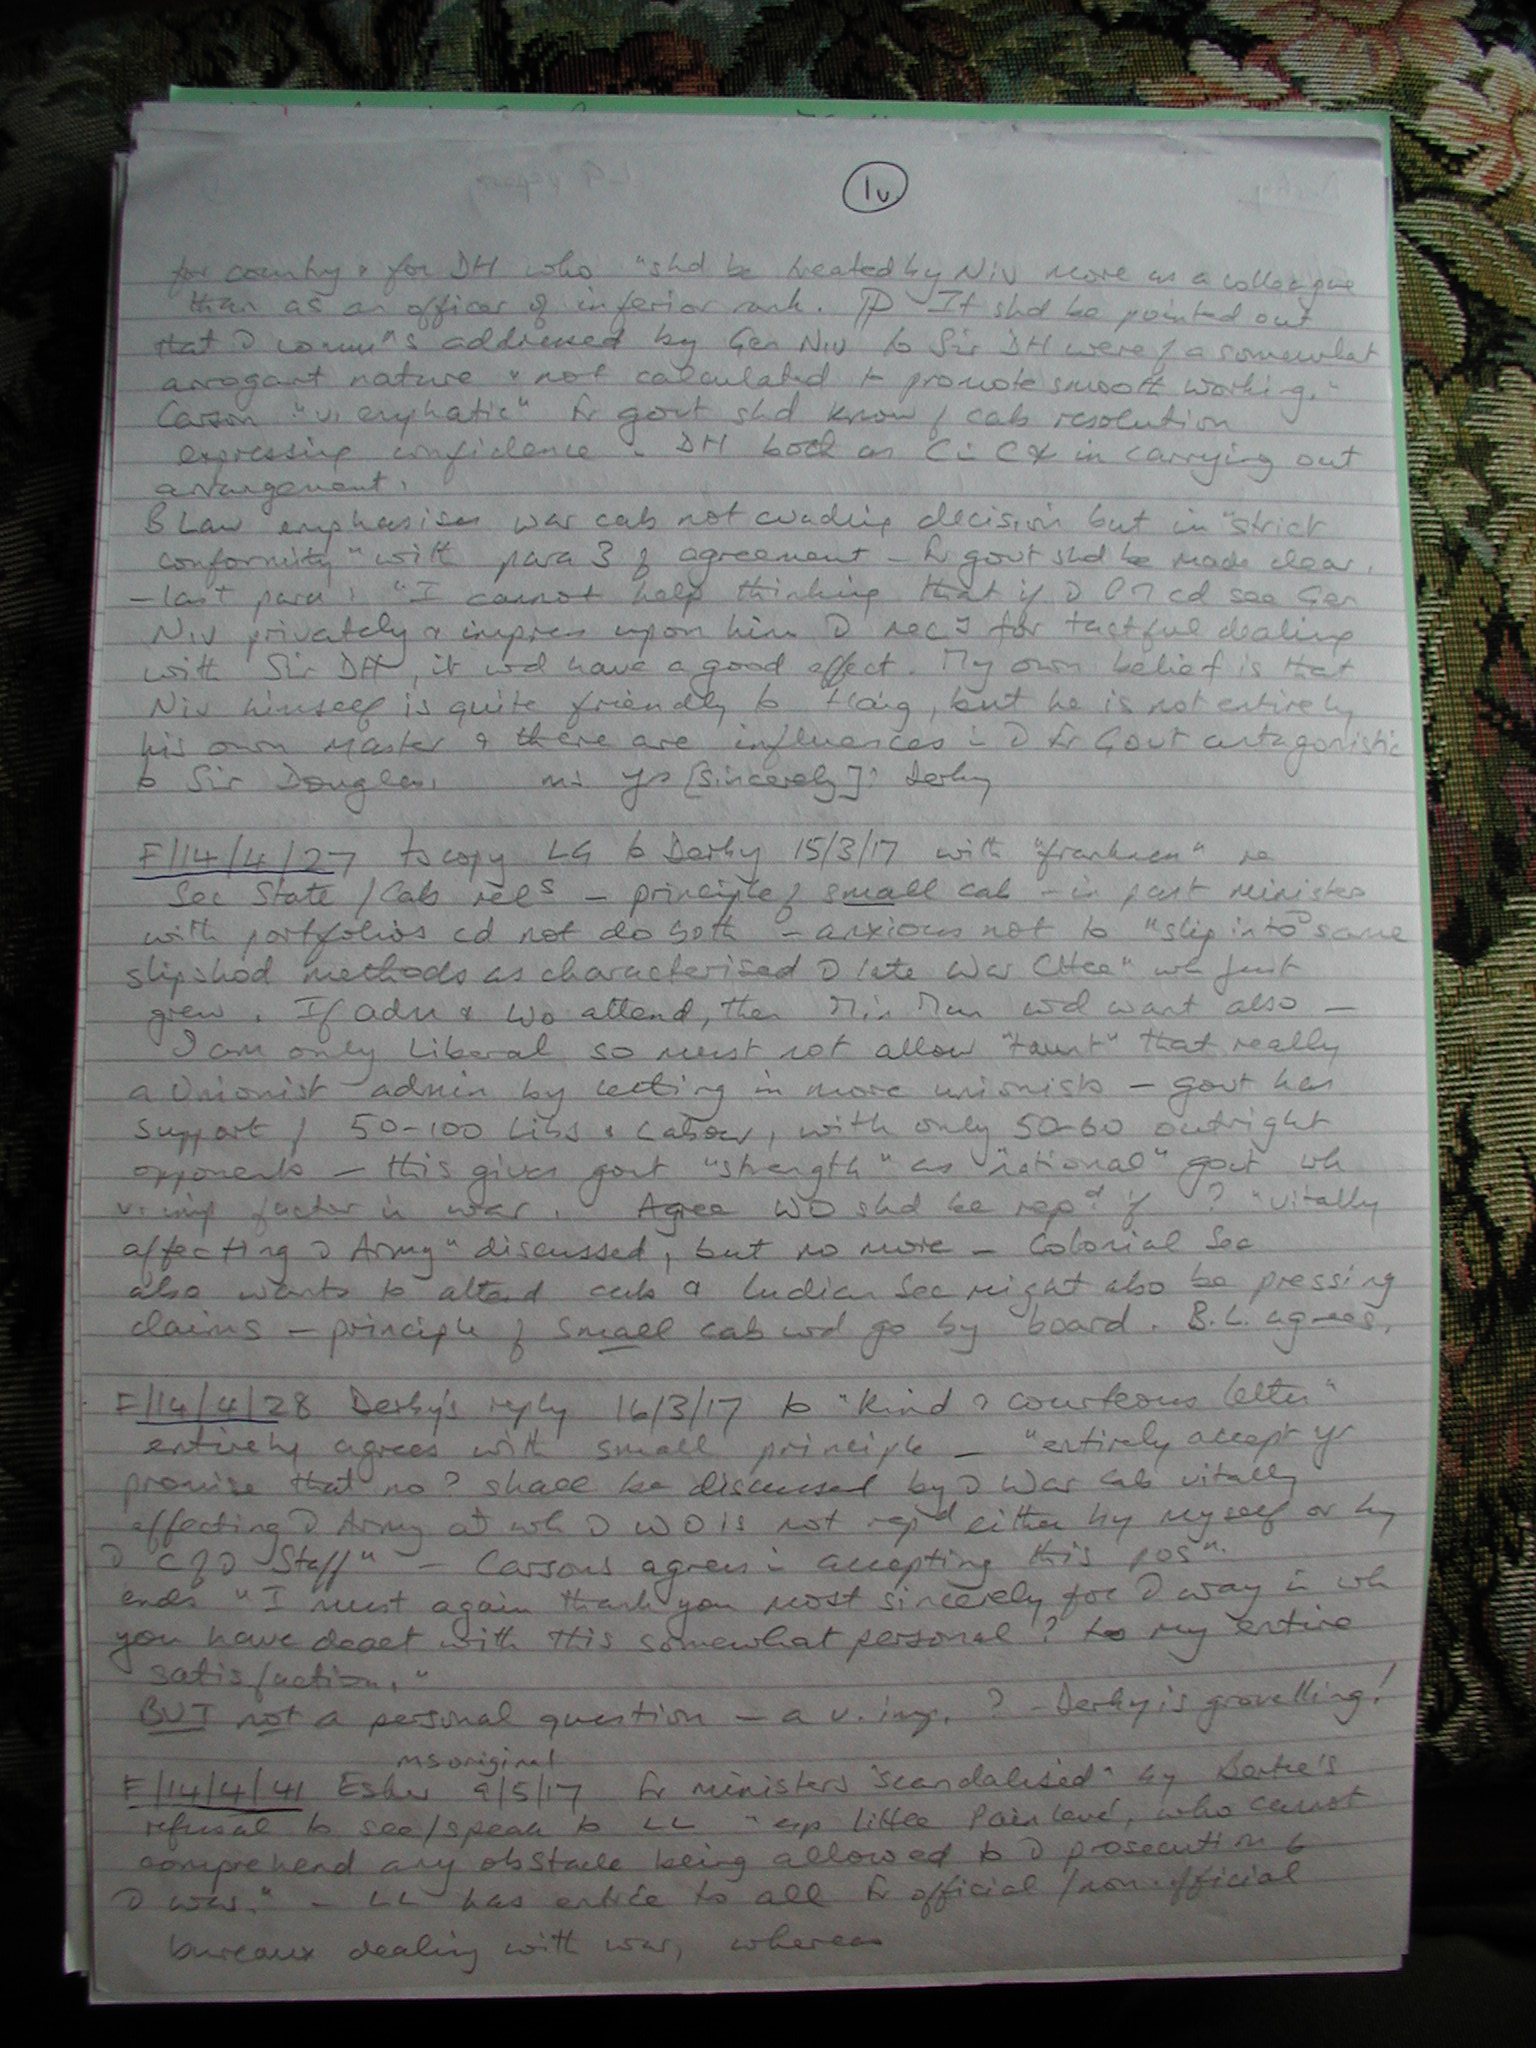 1v
for country & for DH who "shd be treated by Niv more as a colleague
than as an officer of inferior rank. It shd be pointed out
that D comm^ns addressed by Gen Niv to Sir DH were of a somewhat
arrogant nature & not calculated to promote smooth working."
Carson "v. emphatic" Fr govt shd know of cab resolution
expressing confidence in DH both as C in C & in carrying out
arrangement.
B Law emphasises war cab not evading decision but in "strict
conformity" with para 3 of agreement – Fr govt shd be made clear.
– last para: "I cannot help thinking that if D PM cd see Gen
Niv privately & impress upon him D nec^y for tactful dealing
with Sir DH, it wd have a good effect. My own belief is that
Niv himself is quite friendly to Haig, but he is not entirely
his own master & there are influences in D Fr Govt antagonistic
to Sir Douglas. ms yrs [sincerely]? Derby
F/14/4/27 ts copy LG to Derby 15/3/17 with "frankness" re
Sec State/Cab rel^s – principle of small cab – in past ministers
with portfolios cd not do both – anxious not to "slip into D same
slipshod methods as characterised D late War Cttee" wh just
grew. If adm & WO attend, then Min Mun wd want also –
I am only Liberal so must not allow "taunt" that really
a Unionist admin by letting in more unionists – govt has
support of 50-100 Libs & Labour, with only 50-60 outright
opponents – this gives govt "strength" as "national" govt wh
v. imp factor in war. Agree WO shd be rep^d if ? "vitally
affecting D Army" discussed, but no more – Colonial Sec
also wants to attend cab & Indian Sec might also be pressing
claims – principle of small cab wd go by board. B.L. agrees.
F/14/4/28 Derby's reply 16/3/17 to "kind & courteous letter"
entirely agrees with small principle – "entirely accept yr
promise that no ? shall be discussed by D War Cab vitally
affecting D Army at wh D WO is not rep^d either by myself or by
D C of D Staff" – Carsons agrees in accepting this pos^n.
ends "I must again thank you most sincerely for D way in wh
you have dealt with this somewhat personal ? to my entire
satisfaction."
BUT not a personal question – a v. imp. ? – Derby is grovelling!
ms original
F/14/4/41 Esher 9/5/17 Fr ministers "scandalised" by Bertie's
refusal to see/speak to LL "esp little Painlevé, who cannot
comprehend any obstacle being allowed to D prosecution of
D war." – LL has entrée to all Fr official/non-official
bureaux dealing with war, whereas